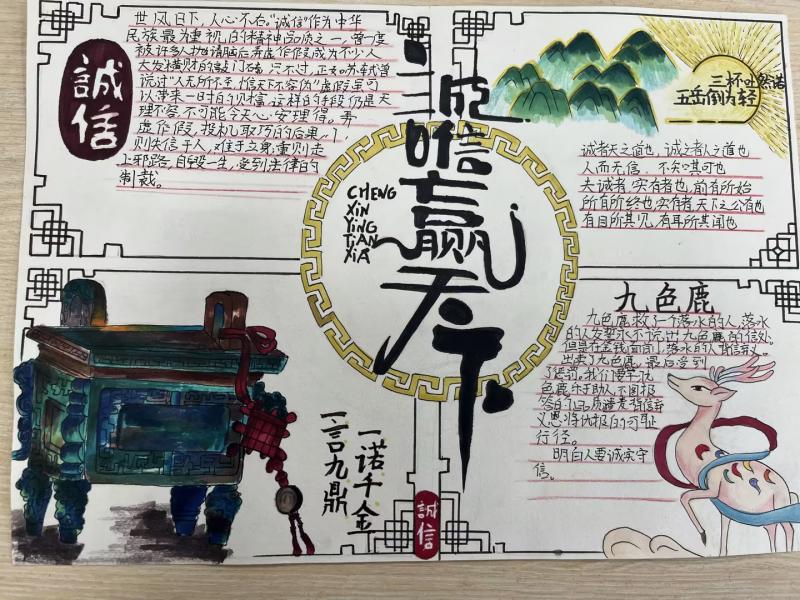 誠信
世风日下,人心不古。"诚信"作为中华
民族最为重视的精神品质之一,曾一度
被许多人抛诸脑后弄虚作假成为不少人
大发横财的敲门砖。只不过,正如苏轼曾
说过"人无所不至,惟天不容伪"虚假虽可
以带来一时的财富,这样的手段仍是天
理不容,不可能令天心安理得。弄
虚作假,投机取巧的后果,
则失信于人,难于立身,重则走
上邪路,自毁一生,受到法律的
制裁。
诚信赢天下
CHENG
XIN
YING
TIAN
XIA
三杯吐然诺
五岳倒为轻
诚者天之道也,诚之者人之道也
人而无信,不知其可也
夫诚者,实有者也,前有所始
所有所终也,实有者,天下之公有也
有目所共见,有耳所共闻也
九色鹿
九色鹿救了一个落水的人,落水
的人发誓永不说出九色鹿的住处
但是在金钱面前,落水的人背信弃义
出卖了九色鹿。最后受到
了惩罚。我们要学习九
色鹿乐于助人,不图报
答的品质,谴责背信弃
义,恩将仇报的可耻
行径。
明白人要诚实守
信。
一诺千金
一言九鼎
誠信